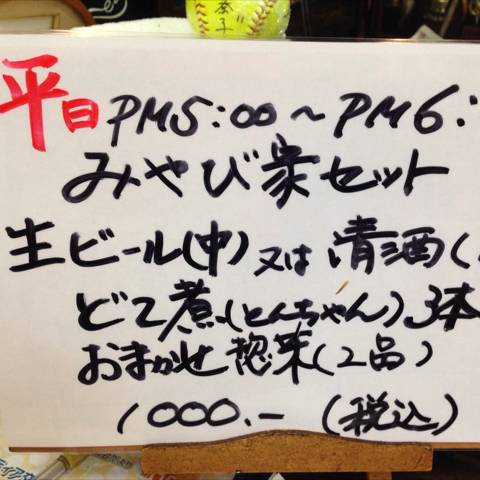 平日 PM5:00～PM6:
みやび家セット
生ビール(中)又は清酒(
どて煮(とんちゃん)3本
おまかせ惣菜(2品)
1000.-(税込)